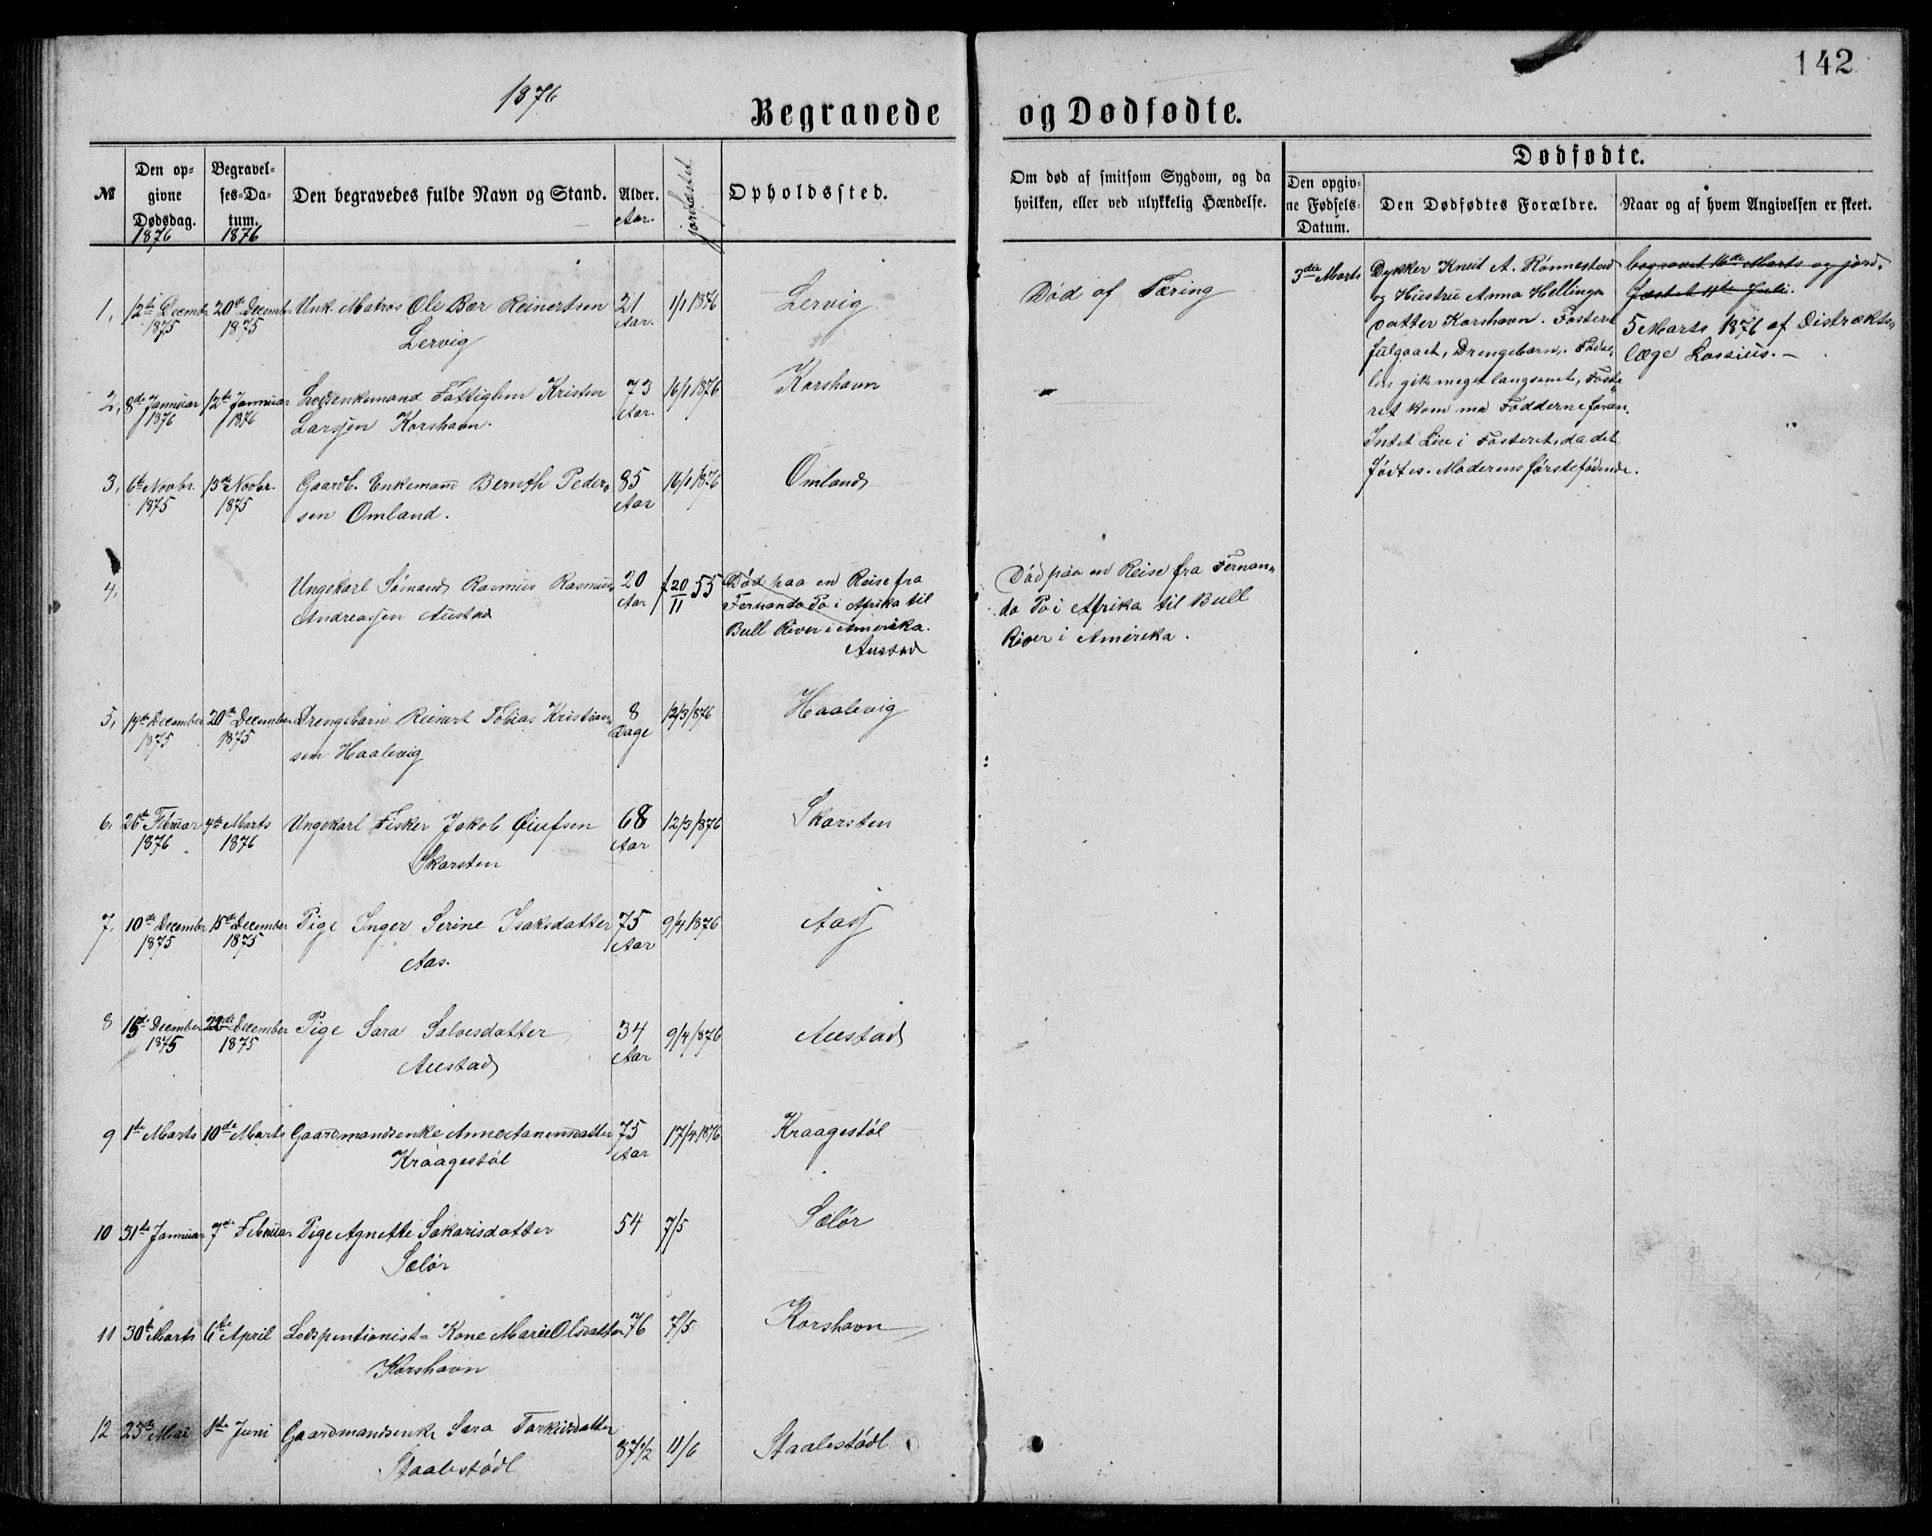 142
1876
Begravede og Dødfødte.
№
Den op-
givne
Dødsdag.
1876
Begravel-
ses-Da-
tum.
1876
Den begravedes fulde Navn og Stand.
Alder.
Aar.
jordfæstet
Opholdssted.
Om død af smitsom Sygdom, og da
hvilken, eller ved ulykkelig Hændelse.
Dødfødte.
Den opgiv-
ne Fødsels-
Datum.
Den Dødfødtes Forældre.
Naar og af hvem Angivelsen er skeet.
1, 12te Decembr 20de Decembr Unk. Matros Ole Bær Reinertsen 21 1/1 1876 Lervig Død af Tæring
1875 1875 Lervig Aar.
2, 8de Januar 12te Januar Lodsenkemand Fattiglem Kristen 73 16/1 1876 Korshavn
1876 1876 Larsen Korshavn. Aar.
3, 6te Novbr. 13de Novbr. Gaardb. Enkemand Bernth Peder- 85 16/1 1876 Omland
1875 1875 sen Omland. Aar
4, Ungekarl Sømand Rasmus Rasmus 20 f 20/11 55 Død paa en Reise fra
Andreassen Austad Aar Fernando Po i Afrika til
Bull River i Amerika.
Austad
Död paa en Reise fra Fernan-
do Po i Afrika til Bull
River i Amerika.
5, 14de December 20de December Drengebarn Reinert Tobias Kristian- 8 12/3 1876 Haalevig
1875 1875 sen Haalevig Dage
6. 26de Februar 4de Marts Ungekarl Fisker Jakob 68 12/3 1876 Skarsten
1876 1876 Skarsten Aar
7, 10de December 15de December Pige Inger Serine Isaksdatter 75 9/4 1876 Aas
1875 1875 Aas. Aar
8 15de December 22de December Pige Sara Salvesdatter 34 9/4 1876 Austad
1875 1875 Austad Aar
9 1ste Marts 10de Marts Gaardmandsenke Anne Anensdatter 75 17/4 1876 Kraagestøl
Kraagestøl Aar
10 31te Januar 7de Februar Pige Agnette Sakarisdatter 54 7/5 Sælør
Sælør
11 30te Marts 6te April Lodspentionist- Kone Marie Olsdatter 76 7/5 Korshavn
Korshavn
12 25de Mai 1ste Juni Gaardmandsenke Sara Torkildsdatter 87 1/2 11/6 Staalestödl
Staalestödl
3die Marts
Dykker Knut A. Rönnestad
og Hustru Anna Hellings-
datter Korshavn. Fosteret
fulgaaet, Drengebarn. Fødse-
len gik meget langsomt, Foste-
ret kom me Fødderne foran.
Intet Liv i Fosteret, da det
fødtes. Moderens førstefødende.
begravet 16de Marts og jord-
fæstet 11te Juli.
5 Marts 1876 af Distrikts-
læge Lossius. -